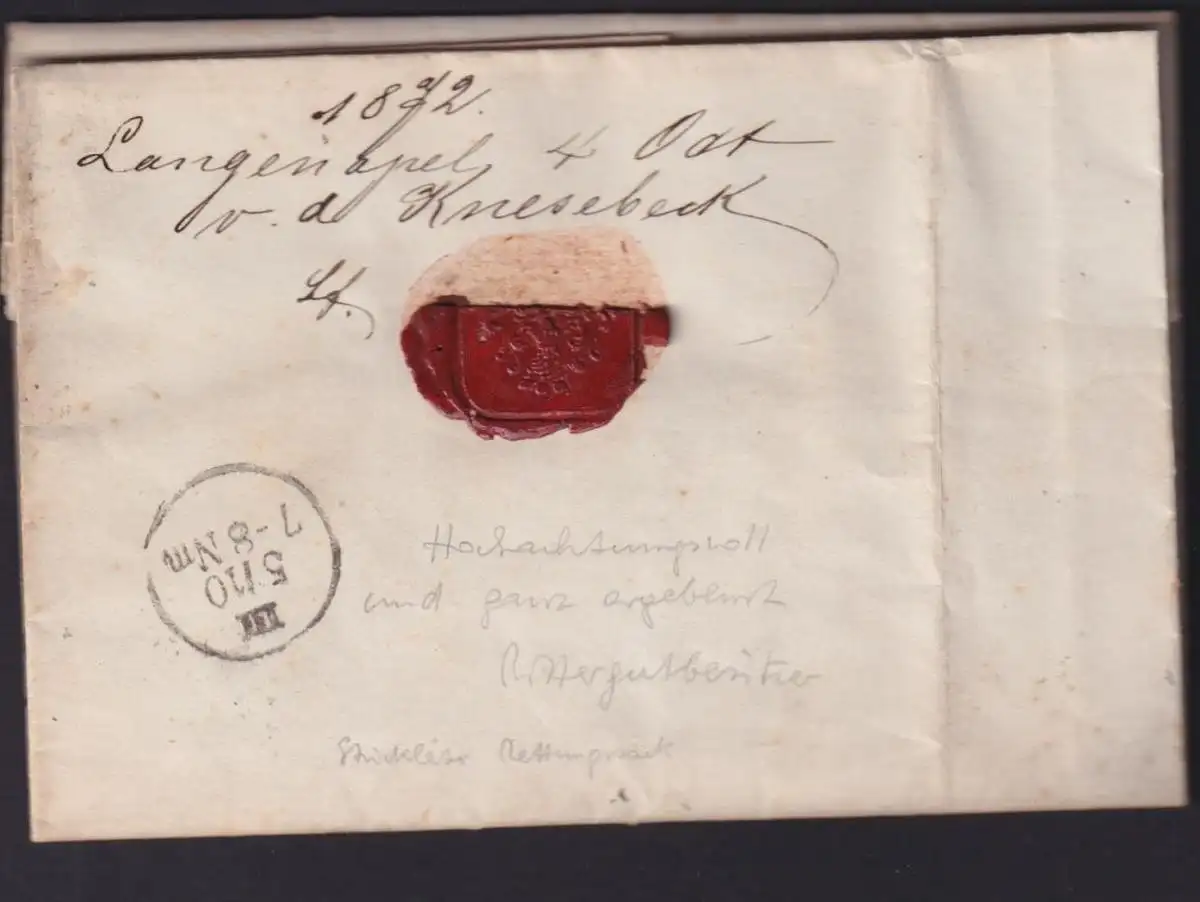 1872.
Langenapel, 4 Oct
v. d. Knesebeck
Lf.
III
5/10
7-8 Nm
Hochachtungsvoll
und ganz ergebenst
Rittergutbesitzer
Rettungs